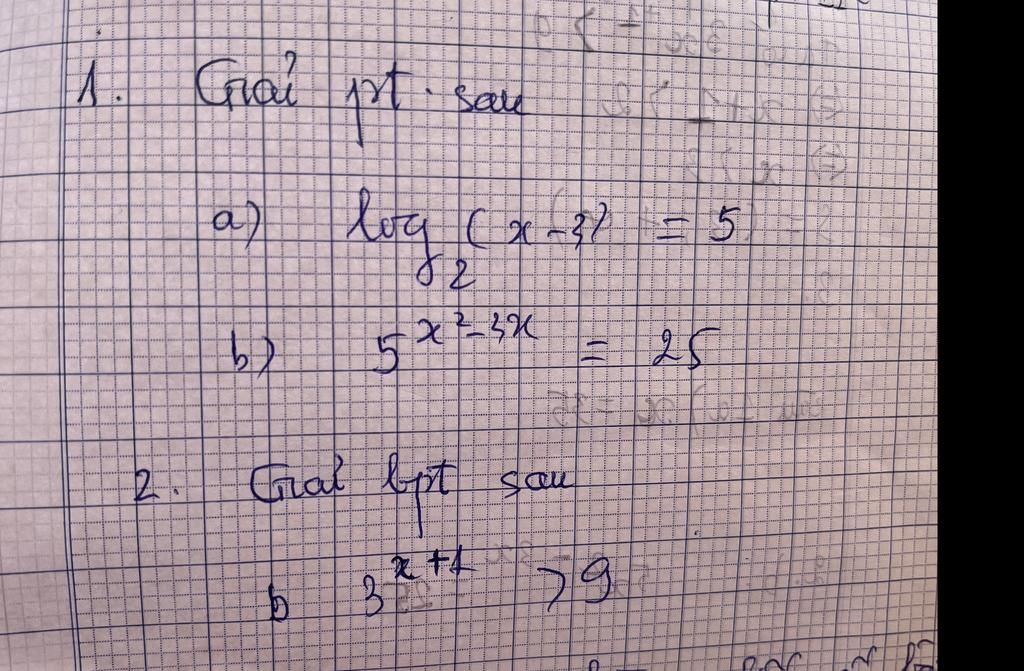 1. Giải pt sau
a) log₂ (x-3) = 5
b) 5^{x²-3x} = 25
2. Giải bpt sau
b 3^{x+1} > 9